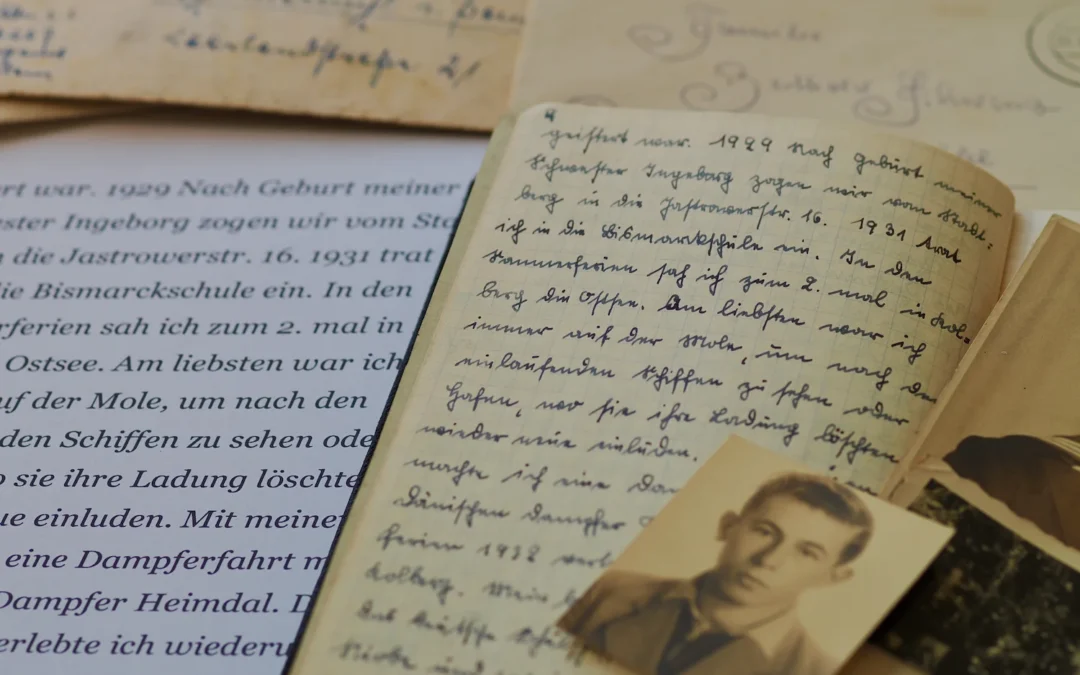 Überlandstraße 21
ert war. 1929 Nach Geburt meiner
ester Ingeborg zogen wir vom Sta
n die Jastrowerstr. 16. 1931 trat
die Bismarckschule ein. In den
rferien sah ich zum 2. mal in
Ostsee. Am liebsten war ich
uf der Mole, um nach den
den Schiffen zu sehen ode
o sie ihre Ladung löschte
ue einluden. Mit meine
eine Dampferfahrt m
Dampfer Heimdal. D
erlebte ich wiederu
4
geistert war. 1929 Nach Geburt meiner
Schwester Ingeborg zogen wir vom Stadt=
berg in die Jastrowerstr. 16. 1931 trat
ich in die Bismarckschule ein. In den
Sommerferien sah ich zum 2. mal in Kol=
berg die Ostsee. Am liebsten war ich
immer auf der Mole, um nach den
einlaufenden Schiffen zu sehen oder
Hafen, wo sie ihre Ladung löschten
wieder neue einluden.
machte ich eine Dam
Dänischen Dampfer
Ferien 1932 verl
Kolberg. Mein
Das deutsche Schul
Niobe und